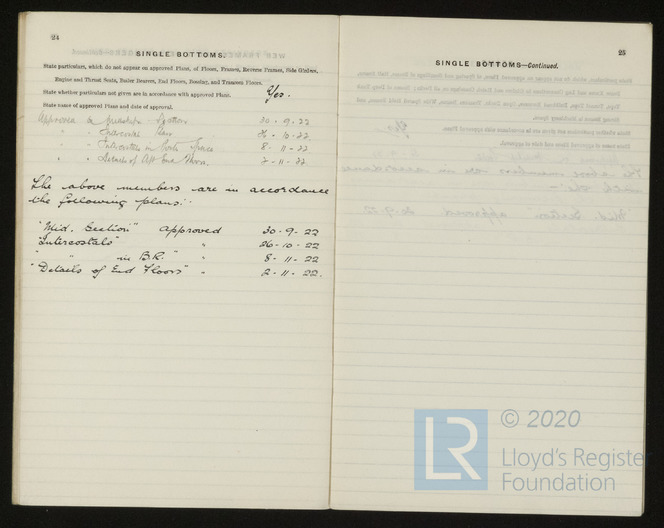 24
SINGLE BOTTOMS.
State particulars, which do not appear on approved Plans, of Floors, Frames, Reverse Frames, Side Girders,
Engine and Thrust Seats, Boiler Bearers, End Floors, Bossing, and Transom Floors.
State whether particulars not given are in accordance with approved Plans. Yes.
State name of approved Plans and date of approval.
Approved Midship Section 30 - 9 - 22
" " Plan 26 - 10 - 22
" " in Boiler Space 8 - 11 - 22
" " Details of Aft End Floors. 2 - 11 - 22
The above members are in accordance
the following plans:-
"Mid. Section" approved 30 - 9 - 22
"Intercostals" " 26 - 10 - 22
" " in B.R." " 8 - 11 - 22
"Details of End Floors" " 2 - 11 - 22.
25
SINGLE BOTTOMS—Continued.
© 2020
LR
Lloyd's Register
Foundation